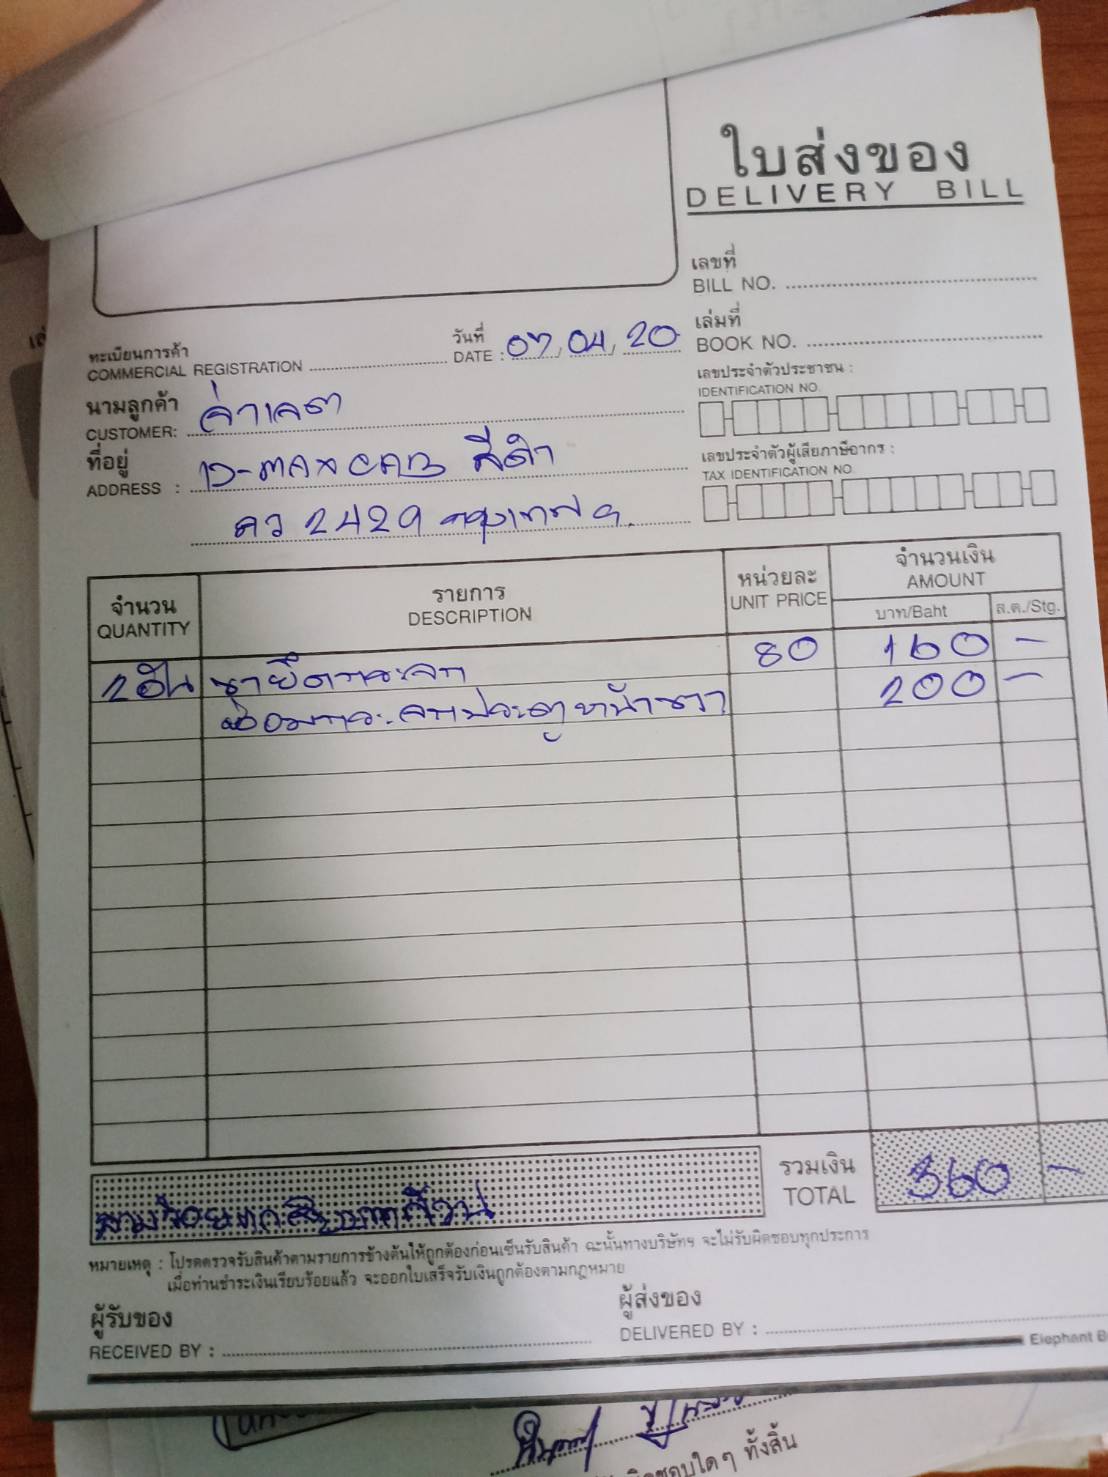 ใบส่งของ
DELIVERY BILL
เลขที่
BILL NO.
ทะเบียนการค้า
COMMERCIAL REGISTRATION
วันที่
DATE : 07, 04, 20
เล่มที่
BOOK NO.
นามลูกค้า
CUSTOMER: จ่าเจตา
เลขประจำตัวประชาชน :
IDENTIFICATION NO.
ที่อยู่
ADDRESS : D-MAX CAB สีดำ
เลขประจำตัวผู้เสียภาษีอากร :
TAX IDENTIFICATION NO.
2429 กรุงเทพฯ
จำนวน
QUANTITY
รายการ
DESCRIPTION
หน่วยละ
UNIT PRICE
จำนวนเงิน
AMOUNT
บาท/Baht ส.ต./Stg.
2 อัน ขายึดกระจก 80 160 -
ซ่อมกระจกประตูหน้าขวา 200 -
รวมเงิน
TOTAL 360 -
สามร้อยหกสิบบาทถ้วน
หมายเหตุ : โปรดตรวจรับสินค้าตามรายการข้างต้นให้ถูกต้องก่อนเซ็นรับสินค้า ฉะนั้นทางบริษัทฯ จะไม่รับผิดชอบทุกประการ
เมื่อท่านชำระเงินเรียบร้อยแล้ว จะออกใบเสร็จรับเงินถูกต้องตามกฎหมาย
ผู้รับของ
RECEIVED BY :
ผู้ส่งของ
DELIVERED BY :
Elephant
ทั้งสิ้น